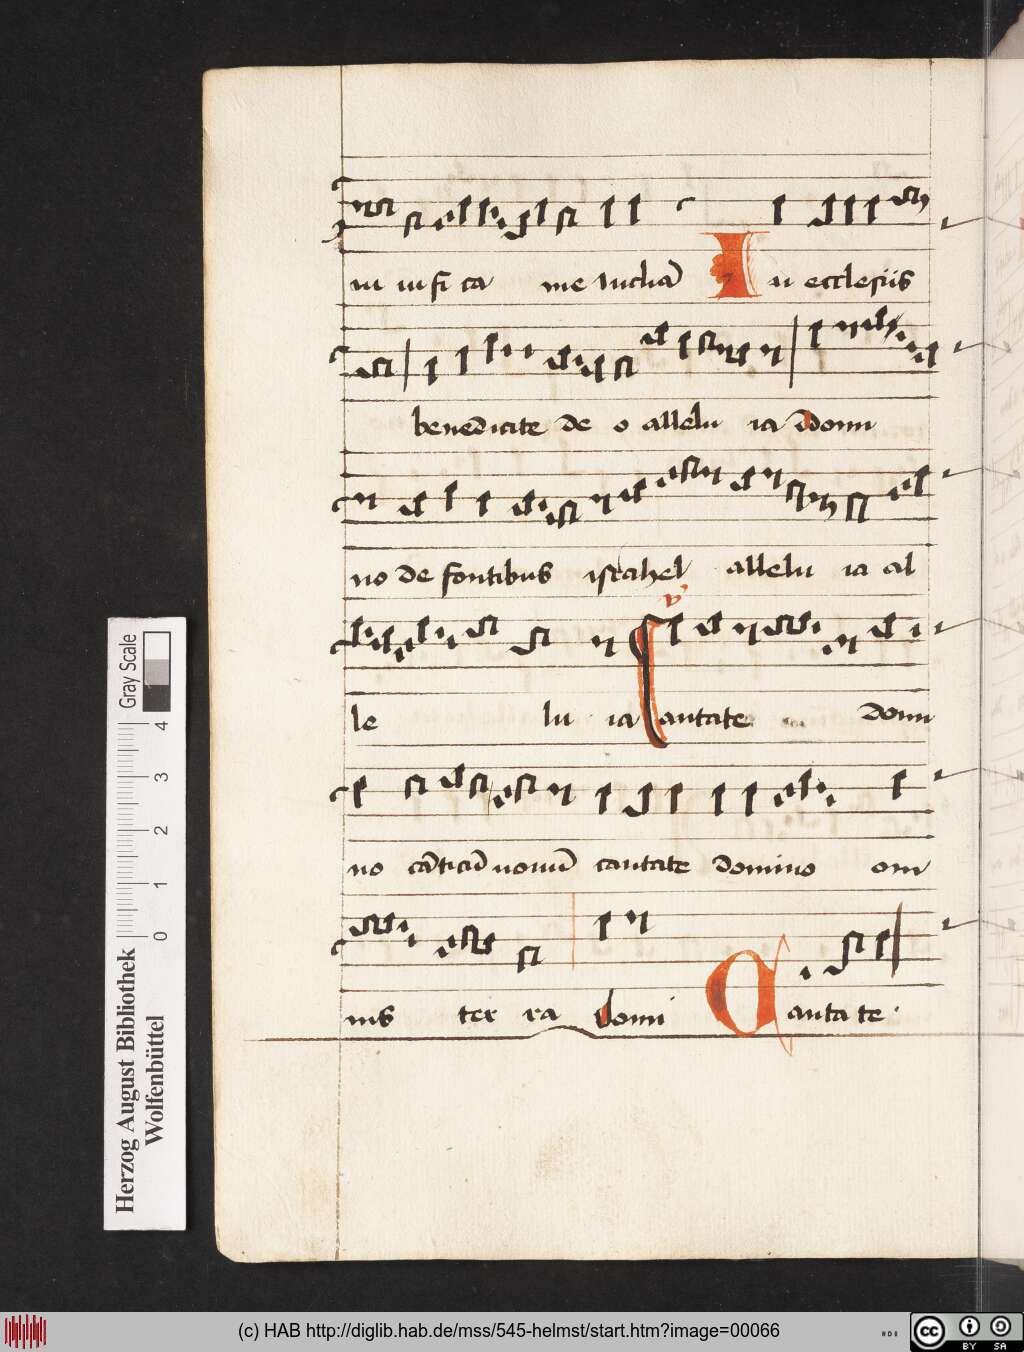 ui iusti ca me Iucha͞ In ecclesiis
benedicite de o allelu ia Domi
no de fontibus israhel allelu ia al
v
le lu ia Cantate domi
no ca͞ticu͞ nouu͞ cantate domino om
nis ter ra domi Cantate
Gray Scale
0 1 2 3 4
Herzog August Bibliothek
Wolfenbüttel
(c) HAB http://diglib.hab.de/mss/545-helmst/start.htm?image=00066
cc
BY SA